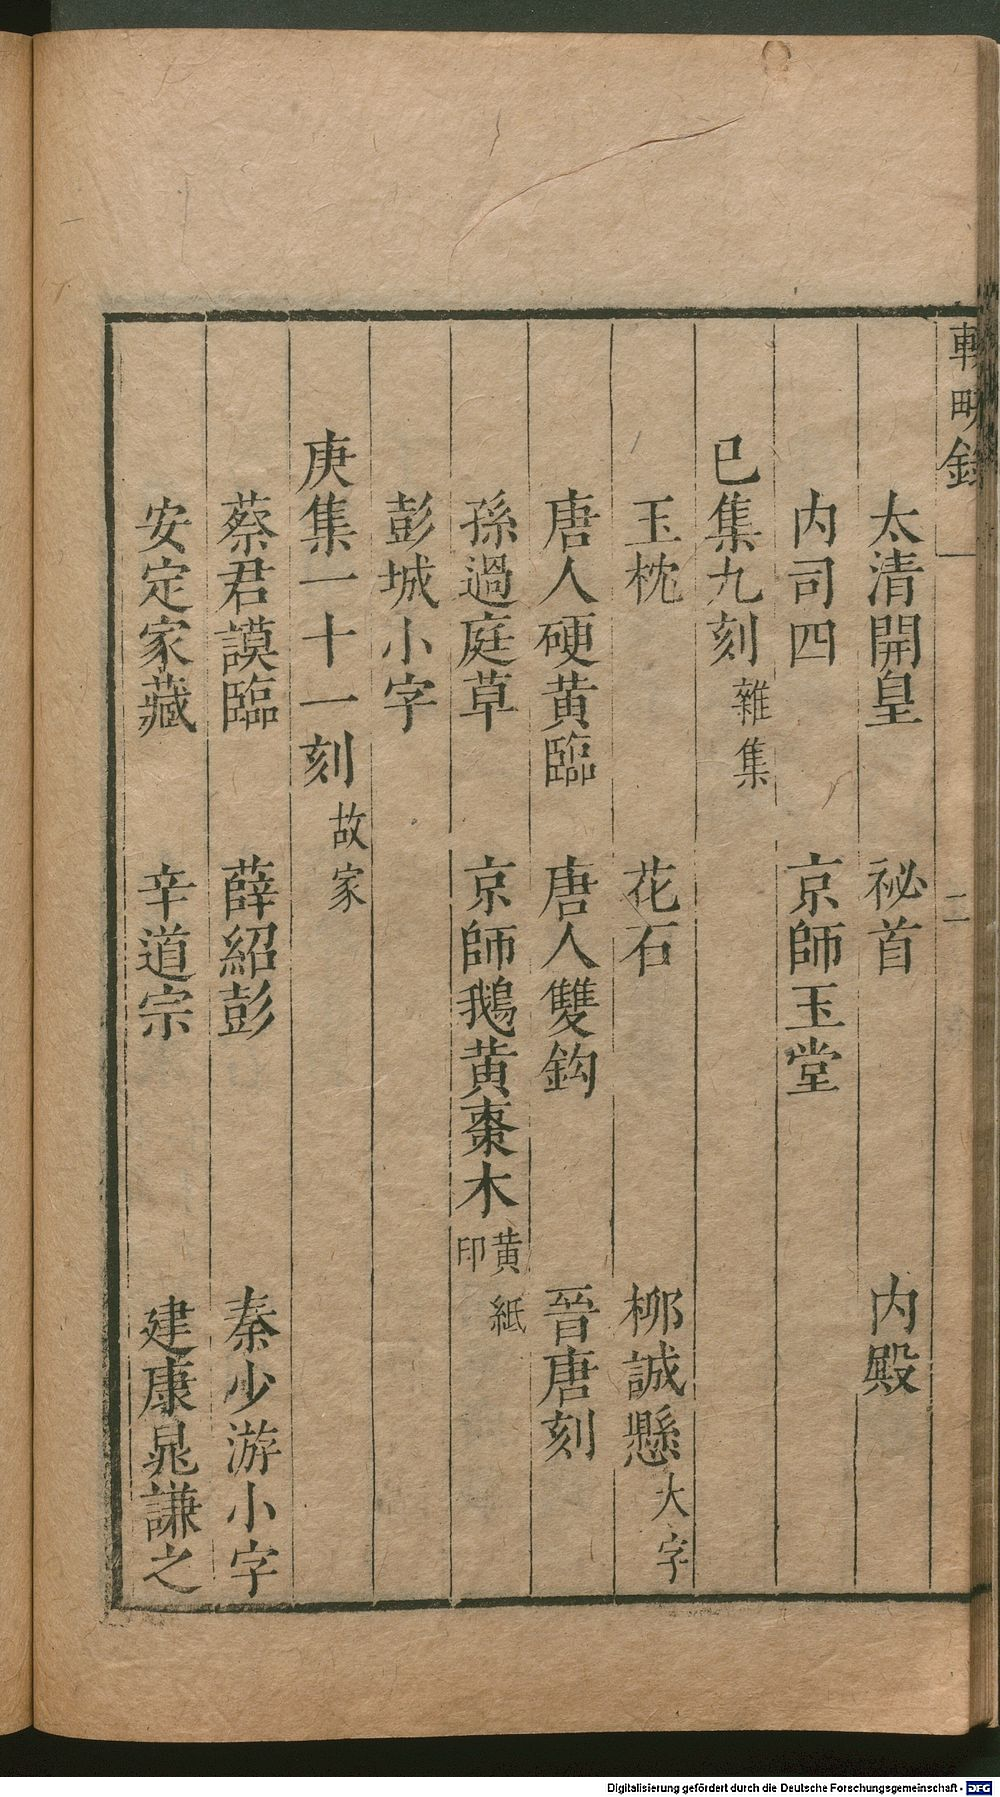 太清開皇　祕首　内殿
内司四　京師玉堂
已集九刻雜集
玉枕　花石　柳誠懸大字
唐人硬黄臨　唐人雙鈎　晉唐刻
孫過庭草　京師鵝黄棗木黄紙印
彭城小字
庚集一十一刻故家
蔡君謨臨　薛紹彭　秦少游小字
安定家藏　辛道宗　建康晁謙之
二
Digitalisierung gefördert durch die Deutsche Forschungsgemeinschaft - DFG